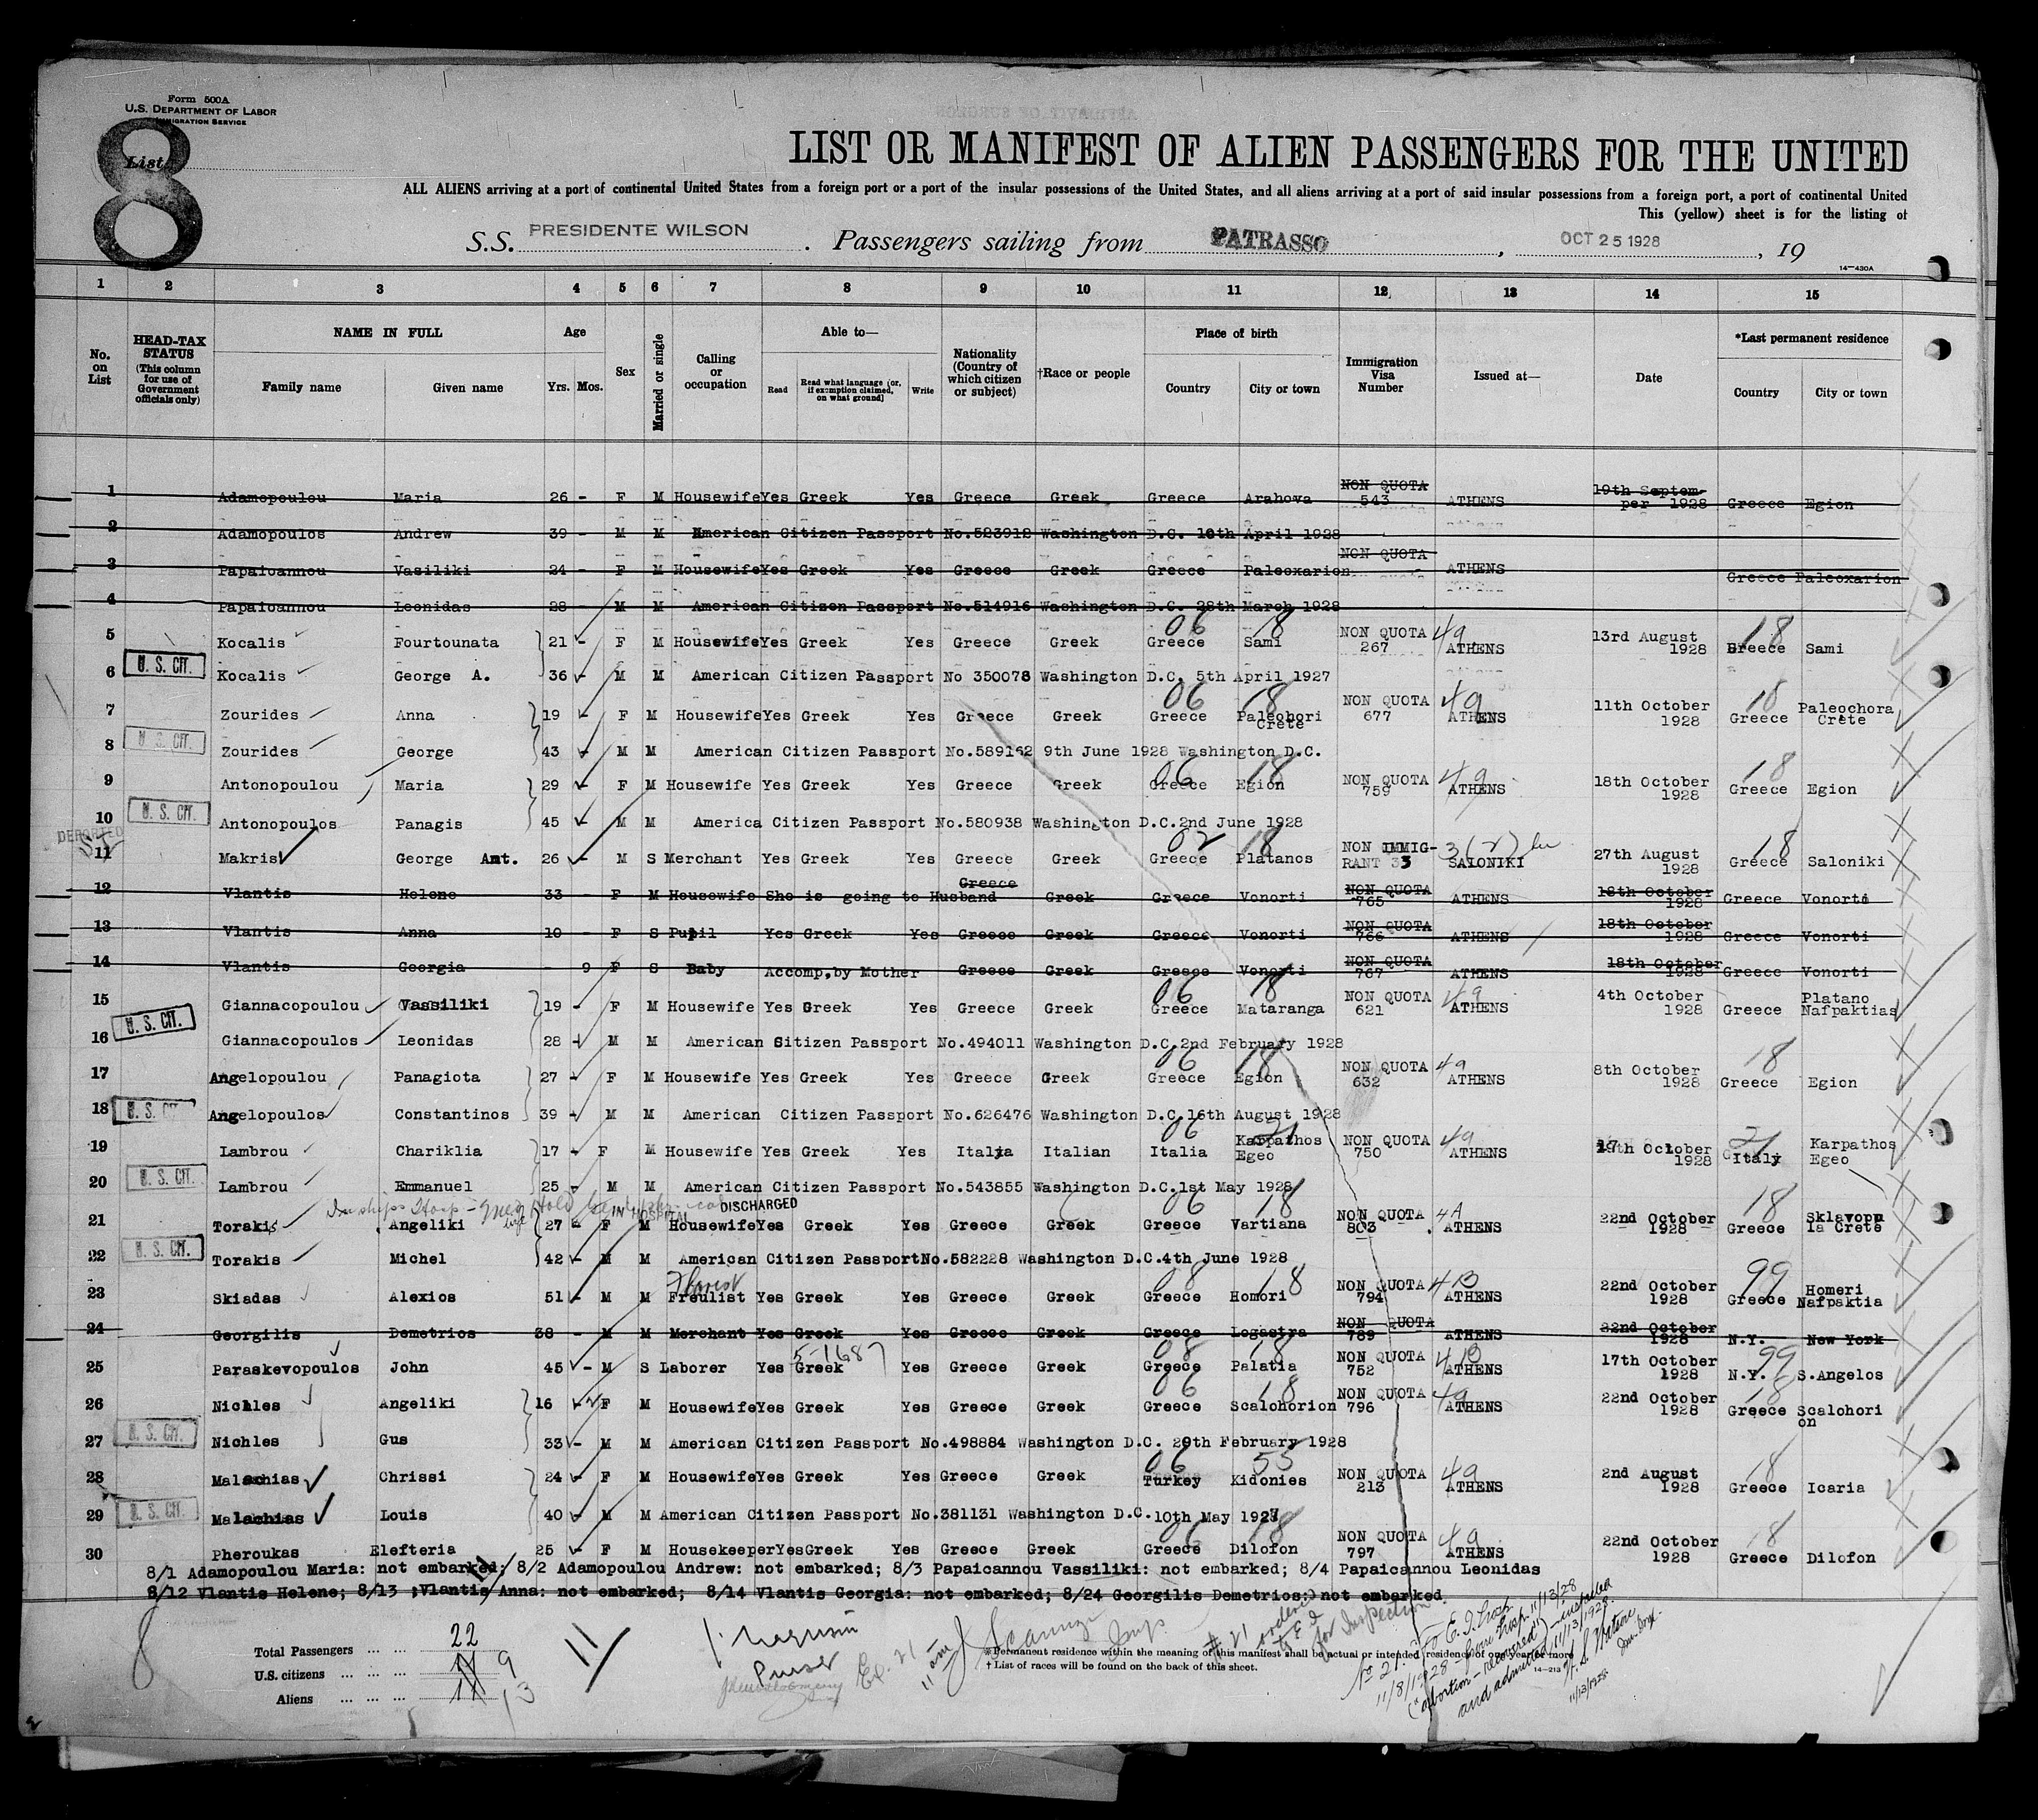 Form 500A
U.S. DEPARTMENT OF LABOR
IMMIGRATION SERVICE
List
8
LIST OR MANIFEST OF ALIEN PASSENGERS FOR THE UNITED
ALL ALIENS arriving at a port of continental United States from a foreign port or a port of the insular possessions of the United States, and all aliens arriving at a port of said insular possessions from a foreign port, a port of continental United
This (yellow) sheet is for the listing of
S.S. PRESIDENTE WILSON. Passengers sailing from PATRASSO, OCT 25 1928, 19
14—430A
1 2 3 4 5 6 7 8 9 10 11 12 13 14 15
No. on List
HEAD-TAX STATUS (This column for use of Government officials only)
NAME IN FULL
Family name Given name
Age
Yrs. Mos.
Sex
Married or single
Calling or occupation
Able to—
Read Read what language (or, if exemption claimed, on what ground) Write
Nationality (Country of which citizen or subject)
†Race or people
Place of birth
Country City or town
Immigration Visa Number
Issued at—
Date
*Last permanent residence
Country City or town
1 Adamopoulou Maria 26 - F M Housewife Yes Greek Yes Greece Greek Greece Arahova NON QUOTA 543 ATHENS 19th Septem- per 1928 Greece Egion
2 Adamopoulos Andrew 39 - M M American Citizen Passport No.523912 Washington D.C. 10th April 1928
3 Papaioannou Vasiliki 24 - F M Housewife Yes Greek Yes Greece Greek Greece Paleoxarion NON QUOTA ATHENS Greece Paleoxarion
4 Papaioannou Leonidas 28 - M M American Citizen Passport No.514916 Washington D.C. 28th March 1928
5 Kocalis Fourtounata 21 - F M Housewife Yes Greek Yes Greece Greek Greece 06 Sami 18 NON QUOTA 267 49 ATHENS 13rd August 1928 Greece 18 Sami
6 U. S. CIT. Kocalis George A. 36 - M M American Citizen Passport No 350078 Washington D.C. 5th April 1927
7 Zourides Anna 19 - F M Housewife Yes Greek Yes Greece Greek Greece 06 Paleohori Crete 18 NON QUOTA 677 49 ATHENS 11th October 1928 Greece 18 Paleochora Crete
8 U. S. CIT. Zourides George 43 - M M American Citizen Passport No.589162 9th June 1928 Washington D.C.
9 Antonopoulou Maria 29 - F M Housewife Yes Greek Yes Greece Greek Greece 06 Egion 18 NON QUOTA 759 49 ATHENS 18th October 1928 Greece 18 Egion
10 U. S. CIT. Antonopoulos Panagis 45 - M M America Citizen Passport No.580938 Washington D.C.2nd June 1928
DEPORTED
11 Makris George Ant. 26 - M S Merchant Yes Greek Yes Greece Greek Greece 02 Platanos 18 NON IMMIG- RANT 33 3(2) SALONIKI 27th August 1928 Greece 18 Saloniki
12 Vlantis Helene 33 - F M Housewife She is going to Husband Greece Greek Greece Vonorti NON QUOTA 765 ATHENS 18th October 1928 Greece Vonorti
13 Vlantis Anna 10 - F S Pupil Yes Greek Yes Greece Greek Greece Vonorti NON QUOTA 766 ATHENS 18th October 1928 Greece Vonorti
14 Vlantis Georgia - 9 F S Baby Accomp,by Mother Greece Greek Greece Vonorti NON QUOTA 767 ATHENS 18th October 1928 Greece Vonorti
15 Giannacopoulou Vassiliki 19 - F M Housewife Yes Greek Yes Greece Greek Greece 06 Mataranga 18 NON QUOTA 621 49 ATHENS 4th October 1928 Greece Platano Nafpaktias
16 U. S. CIT. Giannacopoulos Leonidas 28 - M M American Citizen Passport No.494011 Washington D.C.2nd February 1928
17 Angelopoulou Panagiota 27 - F M Housewife Yes Greek Yes Greece Greek Greece 06 Egion 18 NON QUOTA 632 49 ATHENS 8th October 1928 Greece 18 Egion
18 U. S. CIT. Angelopoulos Constantinos 39 - M M American Citizen Passport No.626476 Washington D.C.16th August 1928
19 Lambrou Chariklia 17 - F M Housewife Yes Greek Yes Italia Italian Italia 06 Karpathos Egeo 21 NON QUOTA 750 49 ATHENS 17th October 1928 Italy 21 Karpathos Egeo
20 U. S. CIT. Lambrou Emmanuel 25 - M M American Citizen Passport No.543855 Washington D.C.1st May 1928
In ships Hosp - IN HOSPITAL DISCHARGED
21 Torakis Angeliki 27 - F M Housewife Yes Greek Yes Greece Greek Greece 06 Vartiana 18 NON QUOTA 803 4A ATHENS 22nd October 1928 Greece 18 Sklavopu la Crete
22 U. S. CIT. Torakis Michel 42 - M M American Citizen PassportNo.582228 Washington D.C.4th June 1928
23 Skiadas Alexios 51 - M M Florist Freulist Yes Greek Yes Greece Greek Greece 08 Homori 18 NON QUOTA 794 4B ATHENS 22nd October 1928 Greece 99 Homeri Nafpaktia
24 Georgilis Demetrios 38 - M M Merchant Yes Greek Yes Greece Greek Greece Logastra NON QUOTA 789 ATHENS 22nd October 1928 N.Y. New York
25 Paraskevopoulos John 45 - M S Laborer Yes Greek 5-1687 Yes Greece Greek Greece 08 Palatia 18 NON QUOTA 752 4B ATHENS 17th October 1928 N.Y. 99 S.Angelos
26 Nichles Angeliki 16 - F M Housewife Yes Greek Yes Greece Greek Greece 06 Scalohorion 18 NON QUOTA 796 49 ATHENS 22nd October 1928 Greece 18 Scalohori on
27 U. S. CIT. Nichles Gus 33 - M M American Citizen Passport No.498884 Washington D.C. 29th February 1928
28 Malachias Chrissi 24 - F M Housewife Yes Greek Yes Greece Greek Turkey 06 Kidonies 55 NON QUOTA 213 49 ATHENS 2nd August 1928 Greece 18 Icaria
29 U. S. CIT. Malachias Louis 40 - M M American Citizen Passport No.381131 Washington D.C. 10th May 1927
30 Pheroukas Elefteria 25 - F M Housekeeper Yes Greek Yes Greece Greek Greece 06 Dilofon 18 NON QUOTA 797 49 ATHENS 22nd October 1928 Greece 18 Dilofon
8/1 Adamopoulou Maria: not embarked; 8/2 Adamopoulou Andrew: not embarked; 8/3 Papaicannou Vassiliki: not embarked; 8/4 Papaicannou Leonidas
8/12 Vlantis Helene; 8/13 ;Vlantis Anna: not embarked; 8/14 Vlantis Georgia: not embarked; 8/24 Georgilis Demetrios: not embarked
Total Passengers ... ... 22
U.S. citizens ... ... ... 9
Aliens ... ... ... 13
11
Purser
#21 ordered for Inspection
* Permanent residence within the meaning of this manifest shall be actual or intended residence of one year or more
† List of races will be found on the back of this sheet.
14—213
No 21. to E. I. 11/8/1928 - from Hosp. 11/13/28
("abortion - recovered") - inspected
and admitted 11/13/1928.
11/13/1928